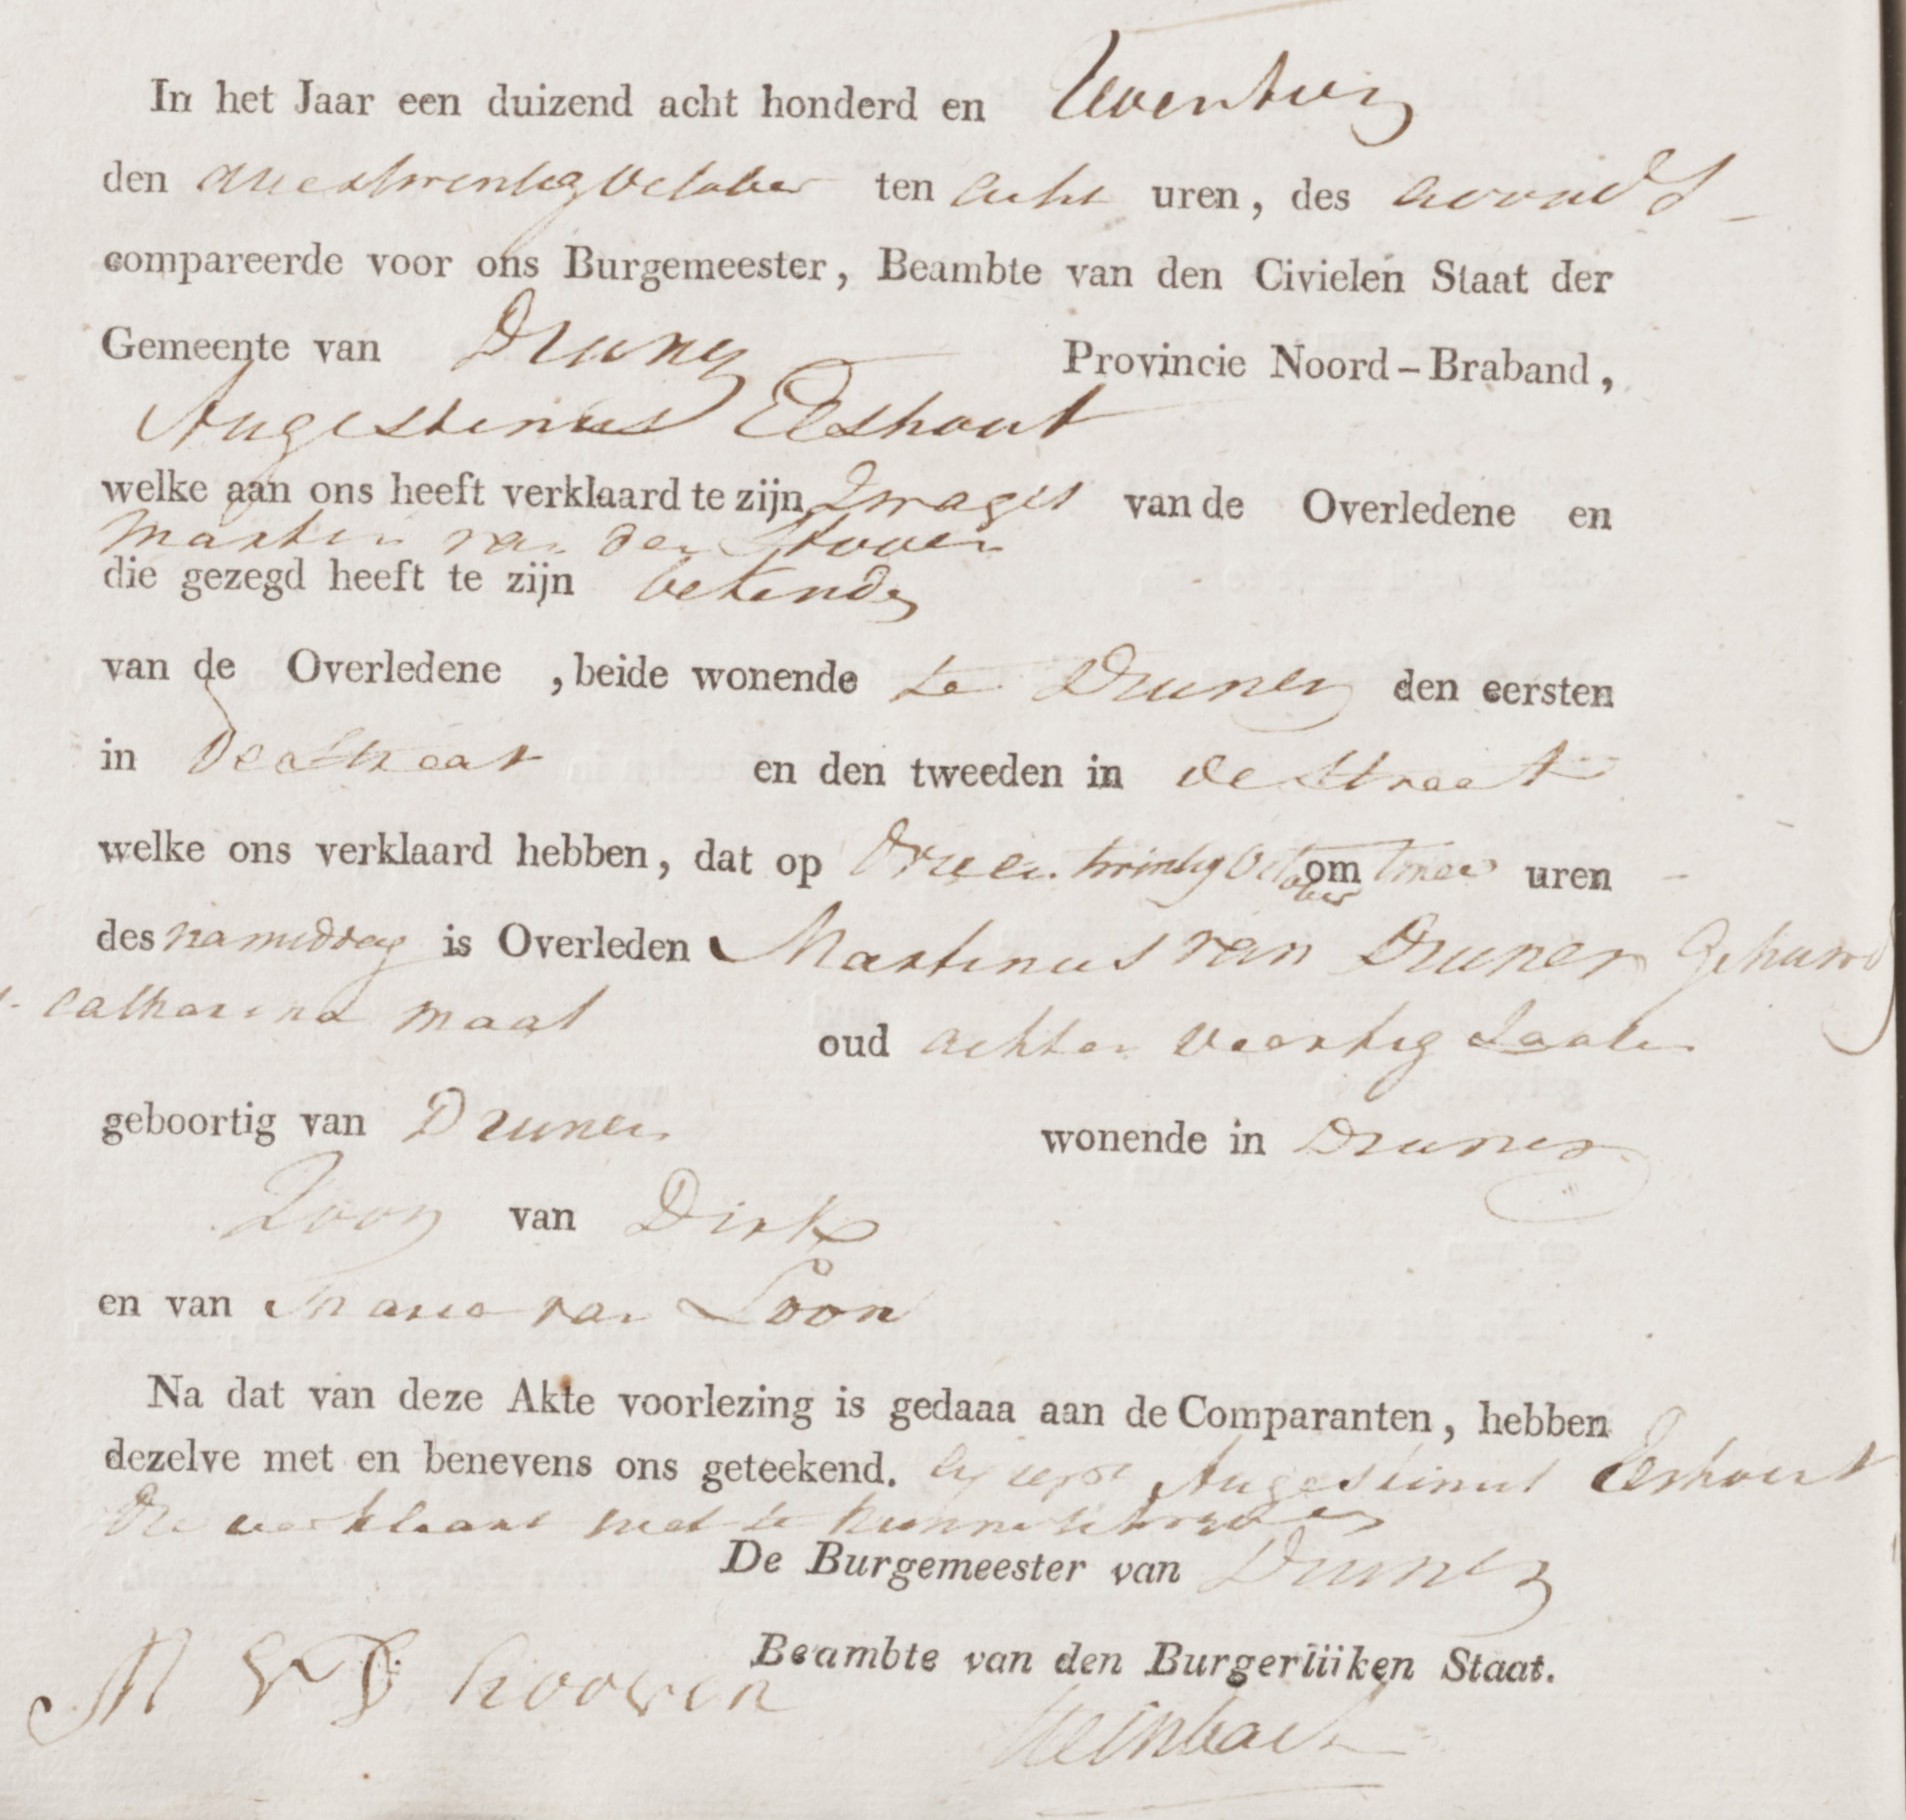 In het Jaar een duizend acht honderd en Twentig
den drieentwentig October ten acht uren, des avonds
compareerde voor ons Burgemeester, Beambte van den Civielen Staat der
Gemeente van Drunen Provincie Noord-Braband,
Augestinus Elshout
welke aan ons heeft verklaard te zijn Zwager van de Overledene en
Marten van den Hoven
die gezegd heeft te zijn bekende
van de Overledene, beide wonende te Drunen den eersten
in de straat en den tweeden in de straat
welke ons verklaard hebben, dat op drieen twintig October om twee uren
des namiddag is Overleden Martinus van Drunen Gehuwd
Catharina Maat oud achten veertig Jaaren
geboortig van Drunen wonende in Drunen
Zoon van Dirk
en van Maria van Loon
Na dat van deze Akte voorlezing is gedaaa aan de Comparanten, hebben
dezelve met en benevens ons geteekend. Augestinus Elshout
die verklaart niet te kunnen schryven
De Burgemeester van Drunen
Beambte van den Burgerliiken Staat.
M V D hooven